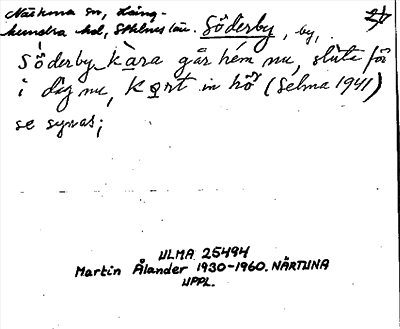 Närtuna sn, Lång-
hundra hd, Sthlms län. Söderby, by,
Söderby kara går hem nu, sluta för
i dag nu, kort in hö (Selma 1941)
se synas;
ULMA 25494
Martin Ålander 1930-1960. NÄRTUNA
UPPL.